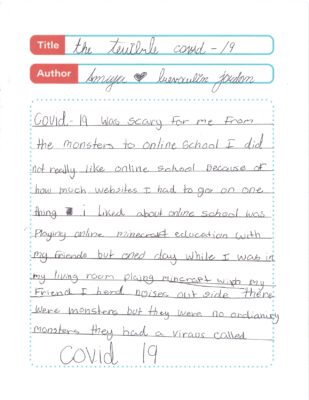 Title the terrible covid-19
Author Amiya jordon
Covid-19 was scary for me from
the monsters to online school I did
not really like online school because of
how much websites I had to go on one
thing i liked about online school was
Playing online minecraft education with
my friends but oned day while I was in
my living room plaing mincraft with my
Friend I herd noises out side there
were monsters but they were no ordianury
monsters they had a viraus called
COVID 19